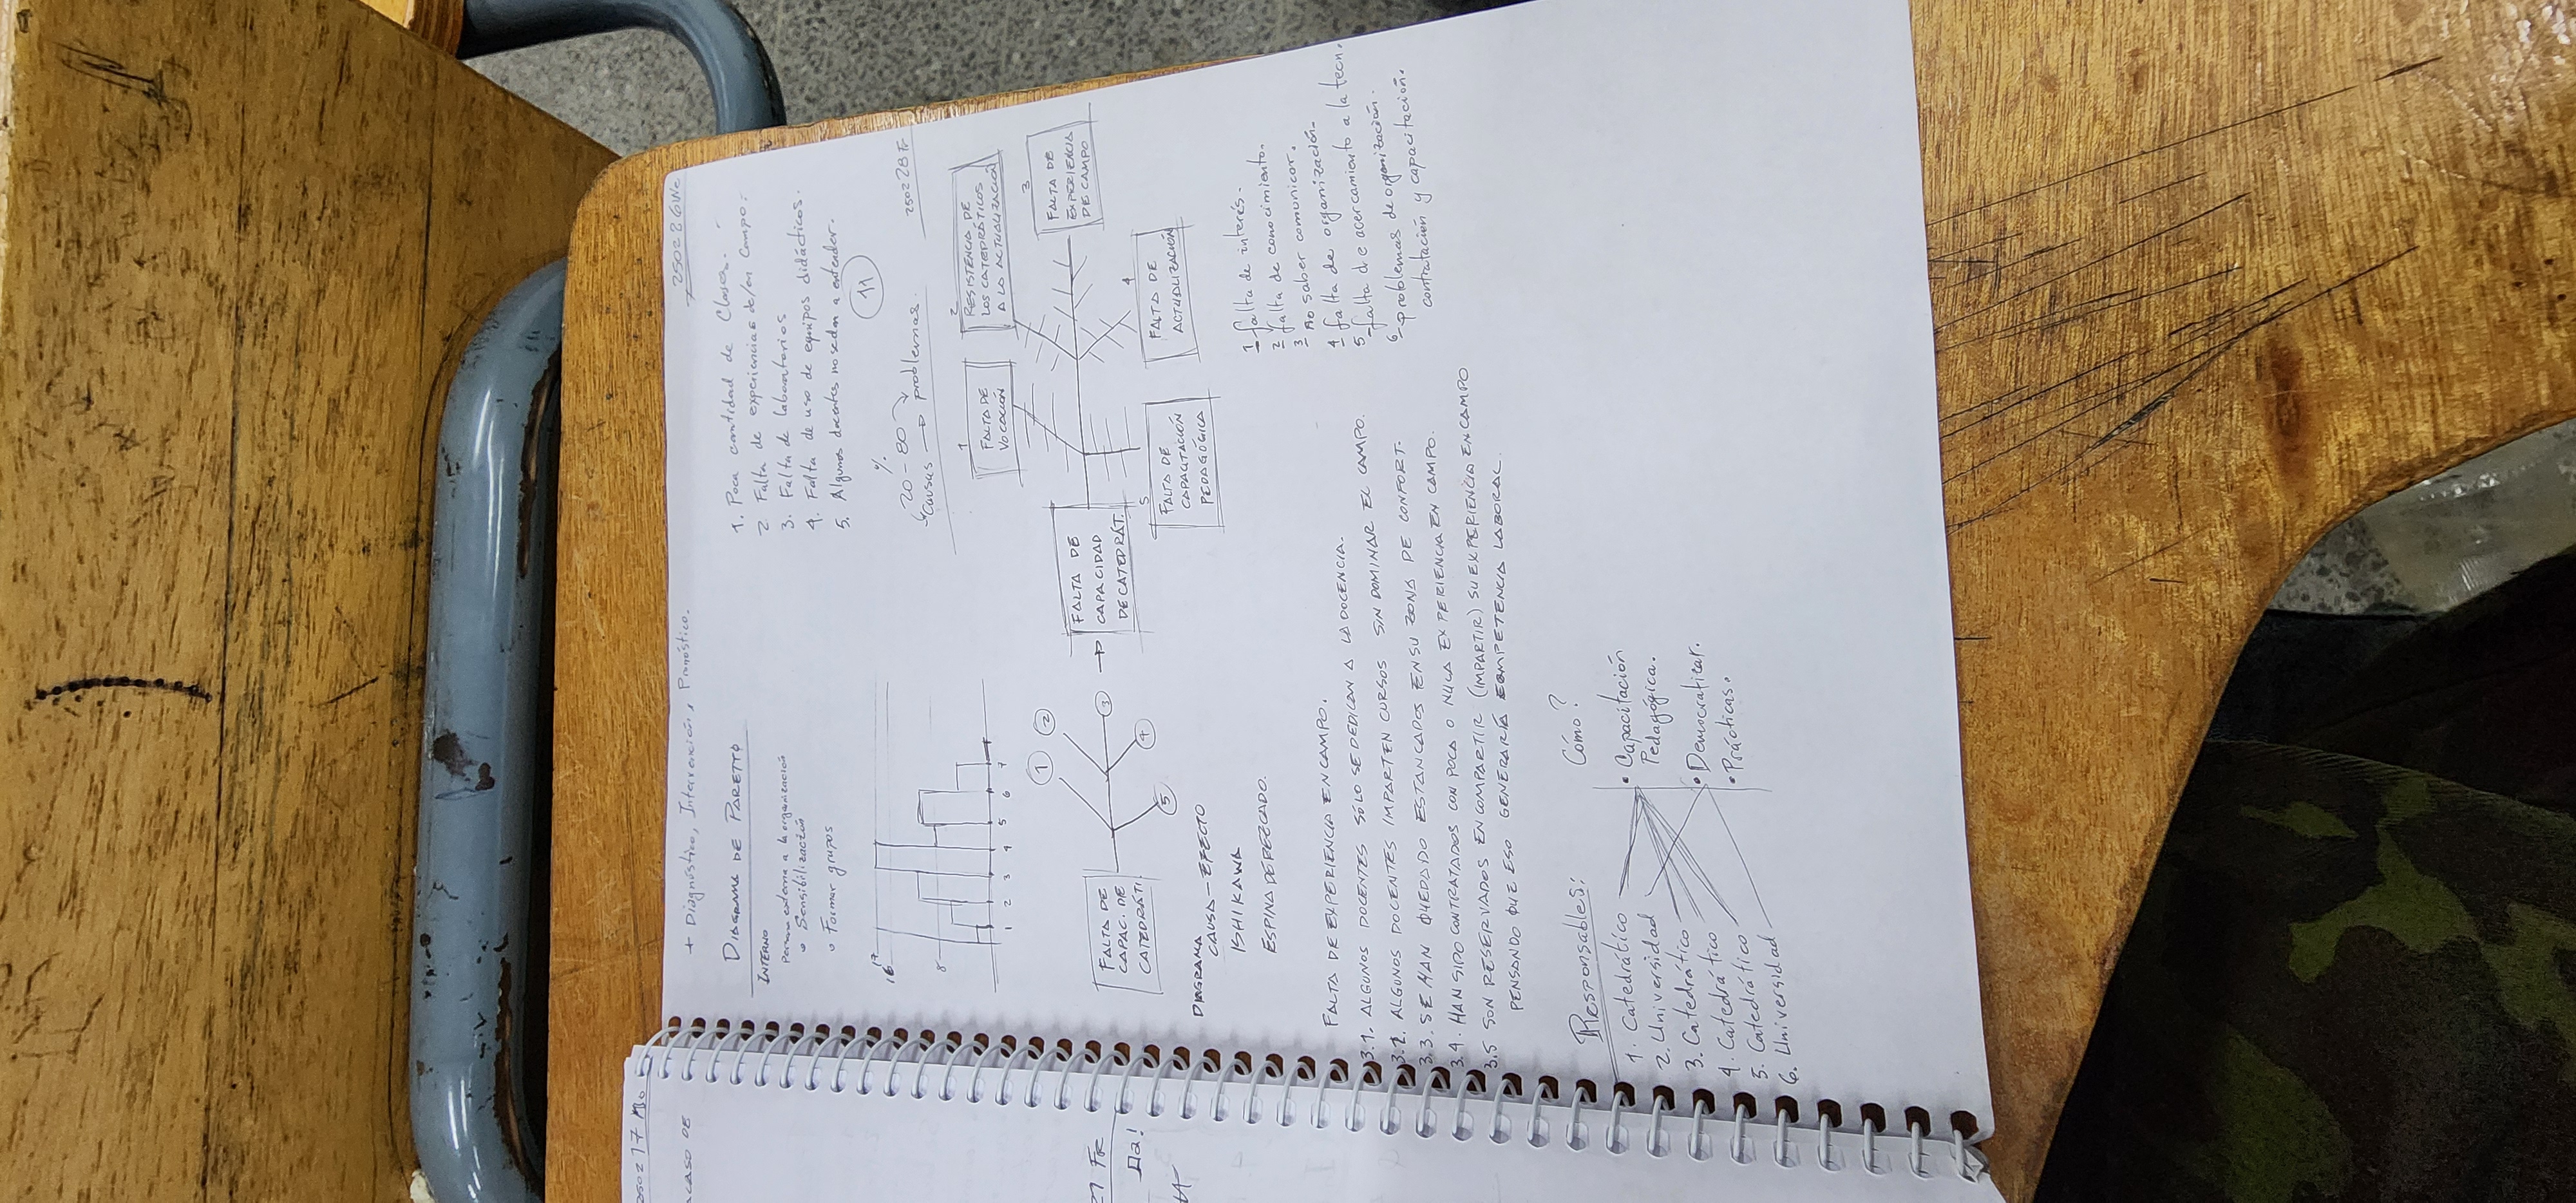 250217 Mo
ACASO DE
21 FR
Да!
+ Diagnóstico, Intervención, Pronóstico.
250226We
DIAGRAMA DE PARETTO
INTERNO
Persona externa a la organización
Sensibilización
Formar grupos
17
16
8
1 2 3 4 5 6 7
1. Poca cantidad de Clases.
2 Falta de experiencias de/en Campo.
3. Falta de laboratorios
4. Falta de uso de equipos didácticos.
5. Algunos docentes no se dan a entender.
11
%
20-80
Causas → problemas.
250228 Fr
FALTA DE
CAPAC. DE
CATEDRÁTI.
1
2
3
4
5
→
FALTA DE
CAPACIDAD
DE CATEDRÁT.
1
FALTA DE
VOCACIÓN
2
RESISTENCIA DE
LOS CATEDRÁTICOS
A LA ACTUALIZACIÓN
3
FALTA DE
EXPERIENCIA
DE CAMPO
4
FALTA DE
ACTUALIZACIÓN
5
FALTA DE
CAPACITACIÓN
PEDAGÓGICA
DIAGRAMA
CAUSA-EFECTO
ISHIKAWA
ESPINA DE PEZCADO.
1 falta de interés.
2 falta de conocimiento.
3 no saber comunicar.
4 falta de organización.
5 falta de acercamiento a la tecn.
6 problemas de organización.
contratación y capacitación.
FALTA DE EXPERIENCIA EN CAMPO.
3.1. ALGUNOS DOCENTES SÓLO SE DEDICAN A LA DOCENCIA.
3.2. ALGUNOS DOCENTES IMPARTEN CURSOS SIN DOMINAR EL CAMPO.
3.3. SE HAN QUEDADO ESTANCADOS EN SU ZONA DE CONFORT.
3.4. HAN SIDO CONTRATADOS CON POCA O NULA EXPERIENCIA EN CAMPO.
3.5 SON RESERVADOS EN COMPARTIR (IMPARTIR) SU EXPERIENCIA EN CAMPO
PENSANDO QUE ESO GENERARÍA COMPETENCIA LABORAL.
Responsables:
1. Catedrático
2. Universidad
3. Catedrático
4. Catedrático
5. Catedrático
6. Universidad
Cómo?
• Capacitación
Pedagógica.
• Democratizar.
• Prácticas.